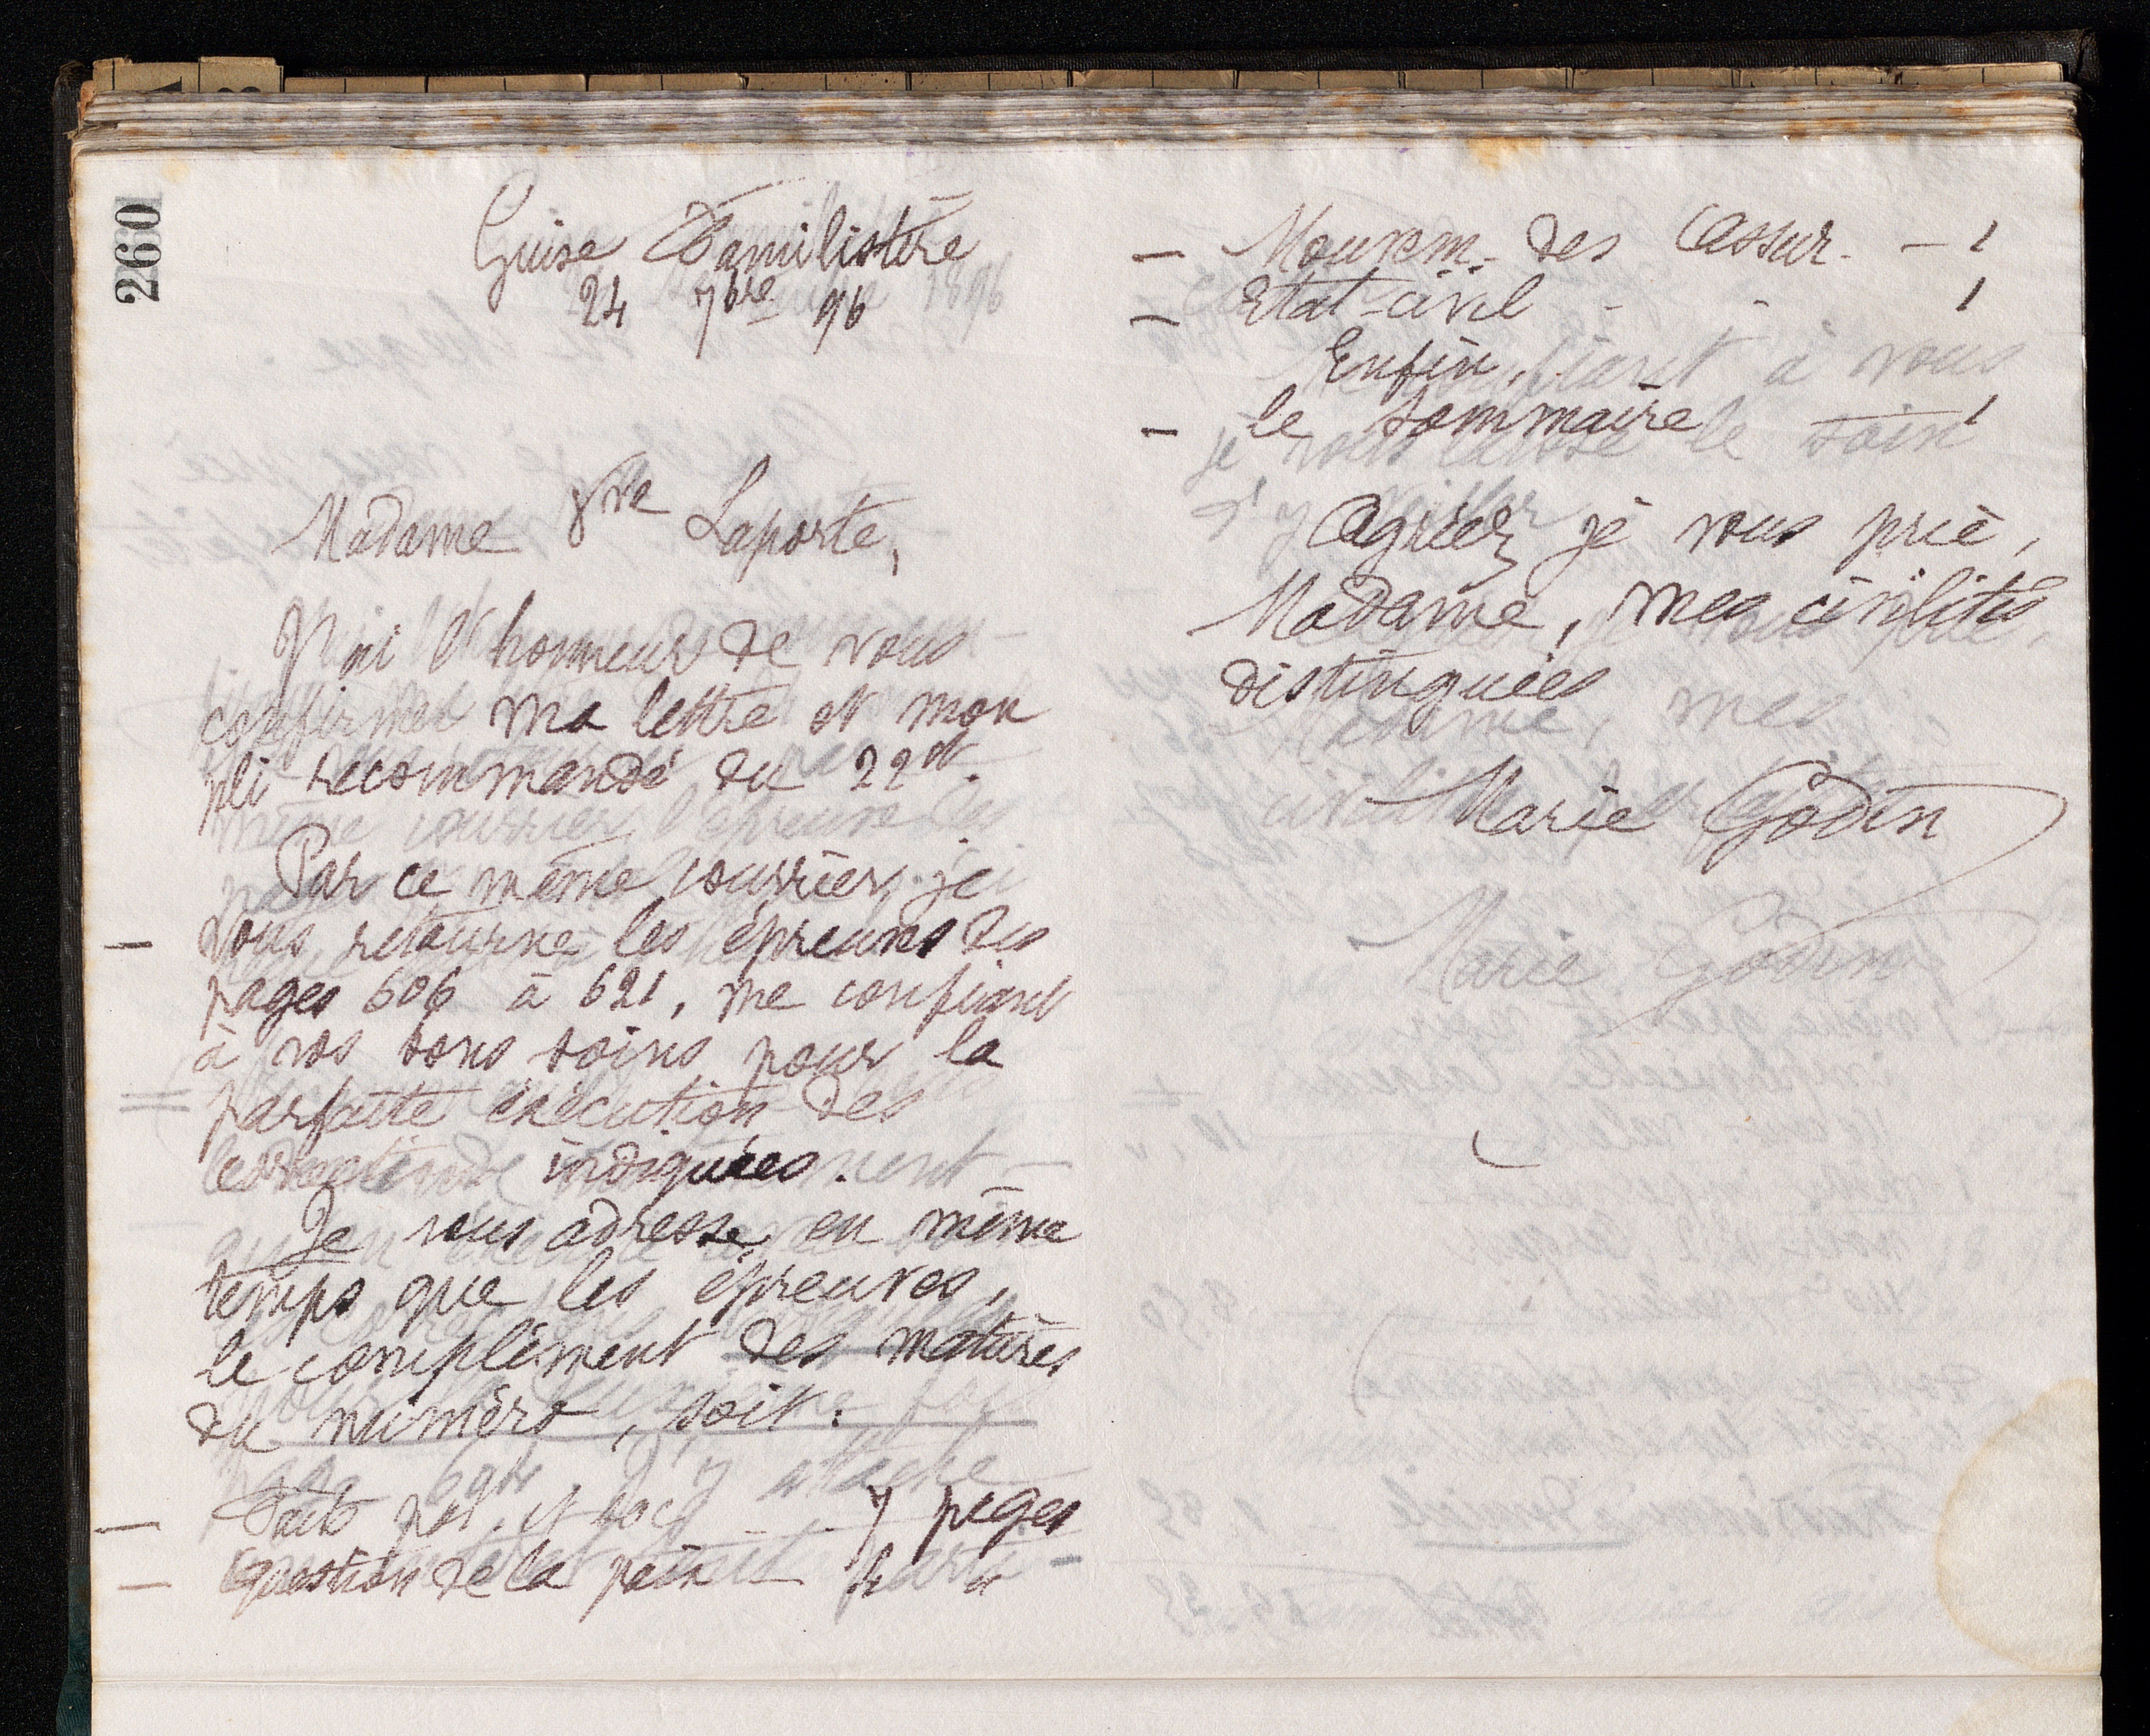 260
Guise Familistère
24 7bre 96
Madame Vve Laporte,
J'ai l'honneur de vous
confirmer ma lettre et mon
pli recommandé du 22 ct.
Par ce même courrier, je
— vous retourne les épreuves des
pages 606 à 621, me confiant
à vos bons soins pour la
parfaite exécution des
corrections indiquées.
Je vous adresse, en même
temps que les épreuves,
le complément des matières
du numéro, soit :
— Faits pol. et soc. - - 7 pages
— Question de la paix — 4 "
— Mouvem. des Assur. — 1
— Etat-civil - - 1
Enfin,
— le sommaire 1
Agréez je vous prie,
Madame, mes civilités
distinguées
Marie Godin